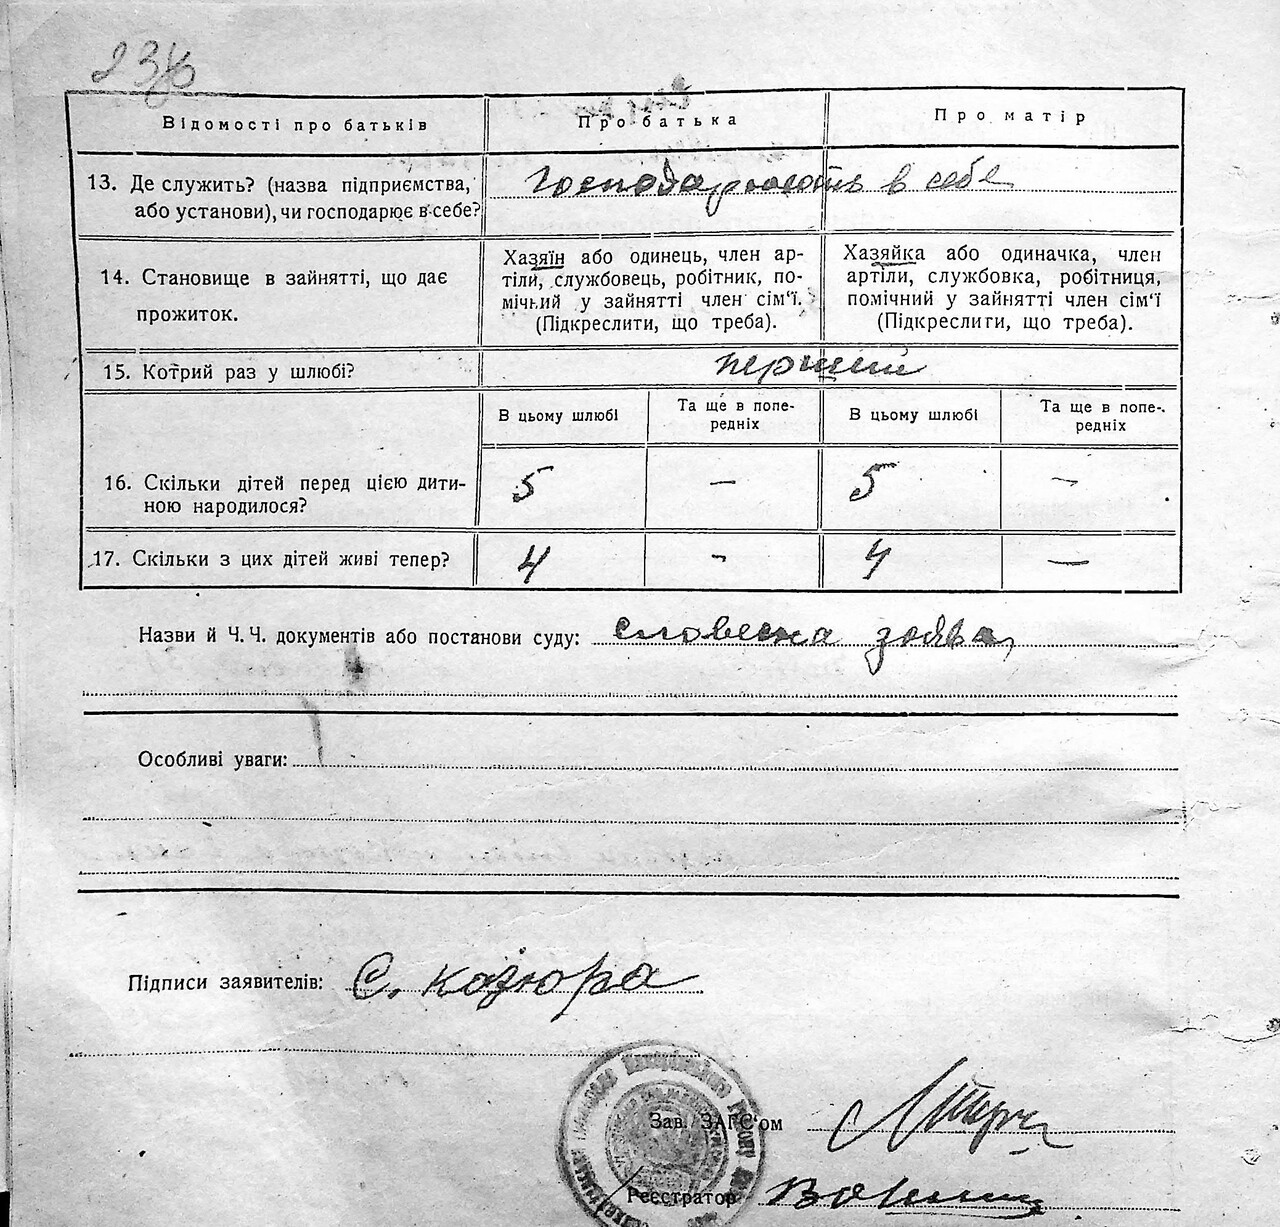 23
Відомості про батьків
Про батька
Про матір
13. Де служить? (назва підприємства,
або установи), чи господарює в себе?
Господарюють в себе
14. Становище в зайнятті, що дає
прожиток.
Хазяїн або одинець, член ар-
тілі, службовець, робітник, по-
мічний у зайнятті член сім'ї.
(Підкреслити, що треба).
Хазяйка або одиначка, член
артілі, службовка, робітниця,
помічний у зайнятті член сім'ї
(Підкреслити, що треба).
15. Котрий раз у шлюбі?
перший
В цьому шлюбі
Та ще в попе-
редніх
В цьому шлюбі
Та ще в попе-
редніх
16. Скільки дітей перед цією дити-
ною народилося?
5 — 5 —
17. Скільки з цих дітей живі тепер?
4 - 4 —
Назви й Ч. Ч. документів або постанови суду: словесна заява
Особливі уваги:
Підписи заявителів: С. Козюра
Зав. ЗАГС'ом
Реєстратор